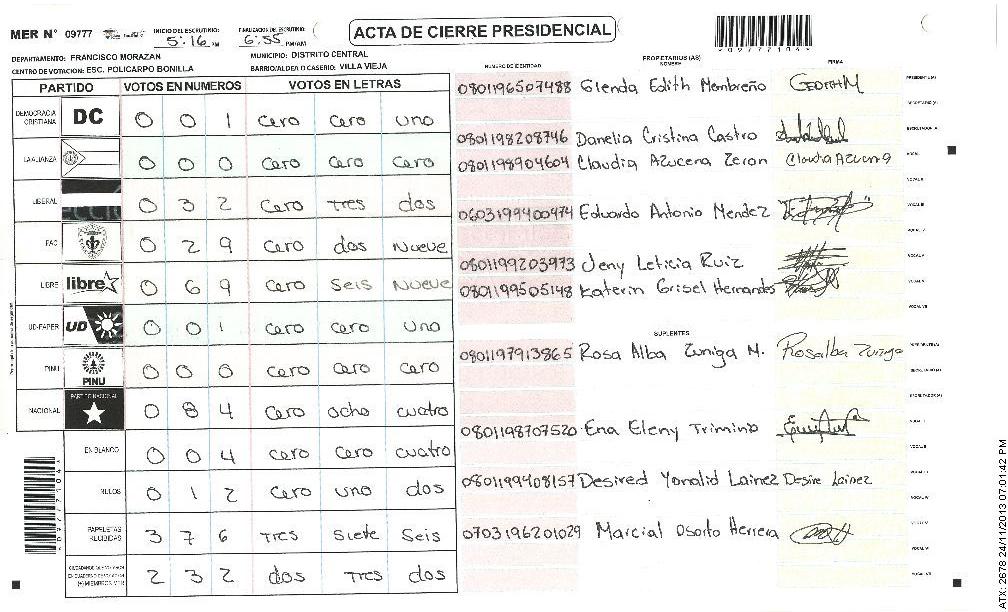 MER N° 09777 INICIO DEL ESCRUTINIO: 5:16 PM FINALIZACION DE ESCRUTINIO: 6:55 PM/AM
ACTA DE CIERRE PRESIDENCIAL
*09777104*
DEPARTAMENTO: FRANCISCO MORAZAN MUNICIPIO: DISTRITO CENTRAL
CENTRO DE VOTACION: ESC. POLICARPO BONILLA BARRIO/ALDEA O CASERIO: VILLA VIEJA
PARTIDO VOTOS EN NUMEROS VOTOS EN LETRAS
DEMOCRACIA CRISTIANA DC 0 0 1 cero cero uno
LA ALIANZA 0 0 0 cero cero cero
LIBERAL 0 3 2 cero tres dos
PAC 0 2 9 cero dos nueve
LIBRE libre 0 6 9 cero seis nueve
UD-FAPER UD 0 0 1 cero cero uno
PINU PINU 0 0 0 cero cero cero
NACIONAL PARTIDO NACIONAL 0 8 4 cero ocho cuatro
EN BLANCO 0 0 4 cero cero cuatro
NULOS 0 1 2 cero uno dos
PAPELETAS RECIBIDAS 3 7 6 tres siete seis
2 3 2 dos tres dos
*09777104*
PROPIETARIOS (AS)
NUMERO DE IDENTIDAD NOMBRE FIRMA
0801196507488 Glenda Edith Membreño GEDITHM PRESIDENTE(A)
SECRETARIO(A)
0801198208746 Danelia Cristina Castro ESCRUTADOR(A)
0801198904604 Claudia Azucena Zeron Claudia Azucena VOCAL I
VOCAL II
0603199400974 Eduardo Antonio Mendez VOCAL III
VOCAL IV
0801199203973 Jeny Leticia Ruiz VOCAL V
0801199505148 Katerin Grisel Hernandes VOCAL VI
VOCAL VII
SUPLENTES
0801197913865 Rosa Alba Zuniga M. Rosalba Zuniga PRESIDENTE(A)
SECRETARIO(A)
ESCRUTADOR(A)
0801198707520 Ena Eleny Trimino VOCAL I
VOCAL II
0801199408157 Desired Yonalid Lainez Desire Lainez VOCAL III
VOCAL IV
0703196201029 Marcial Osorto Herrera VOCAL V
VOCAL VI
VOCAL VII
ATX: 2678 24/11/2013 07:01:42 PM